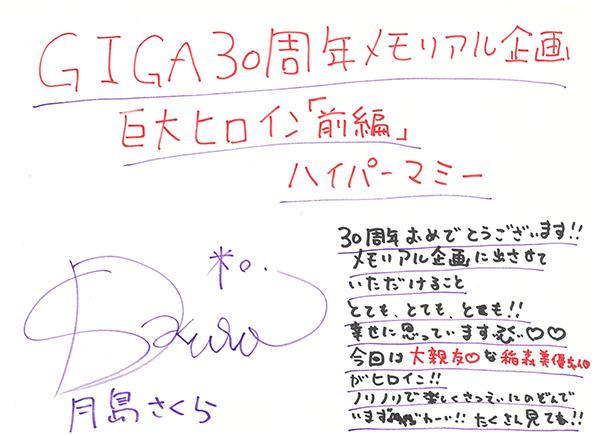 GIGA30周年メモリアル企画
巨大ヒロイン「前編」
ハイパーマミー
30周年おめでとうございます!!
メモリアル企画に出させて
いただけること
とても、とても、とても!!
幸せに思っています♡♡
今回は大親友♡な稲森美優ちゃん♡
がヒロイン!!
ノリノリで楽しくさつえいにのぞんで
います わーい!! たくさん見てね!!
Sakura
月島さくら